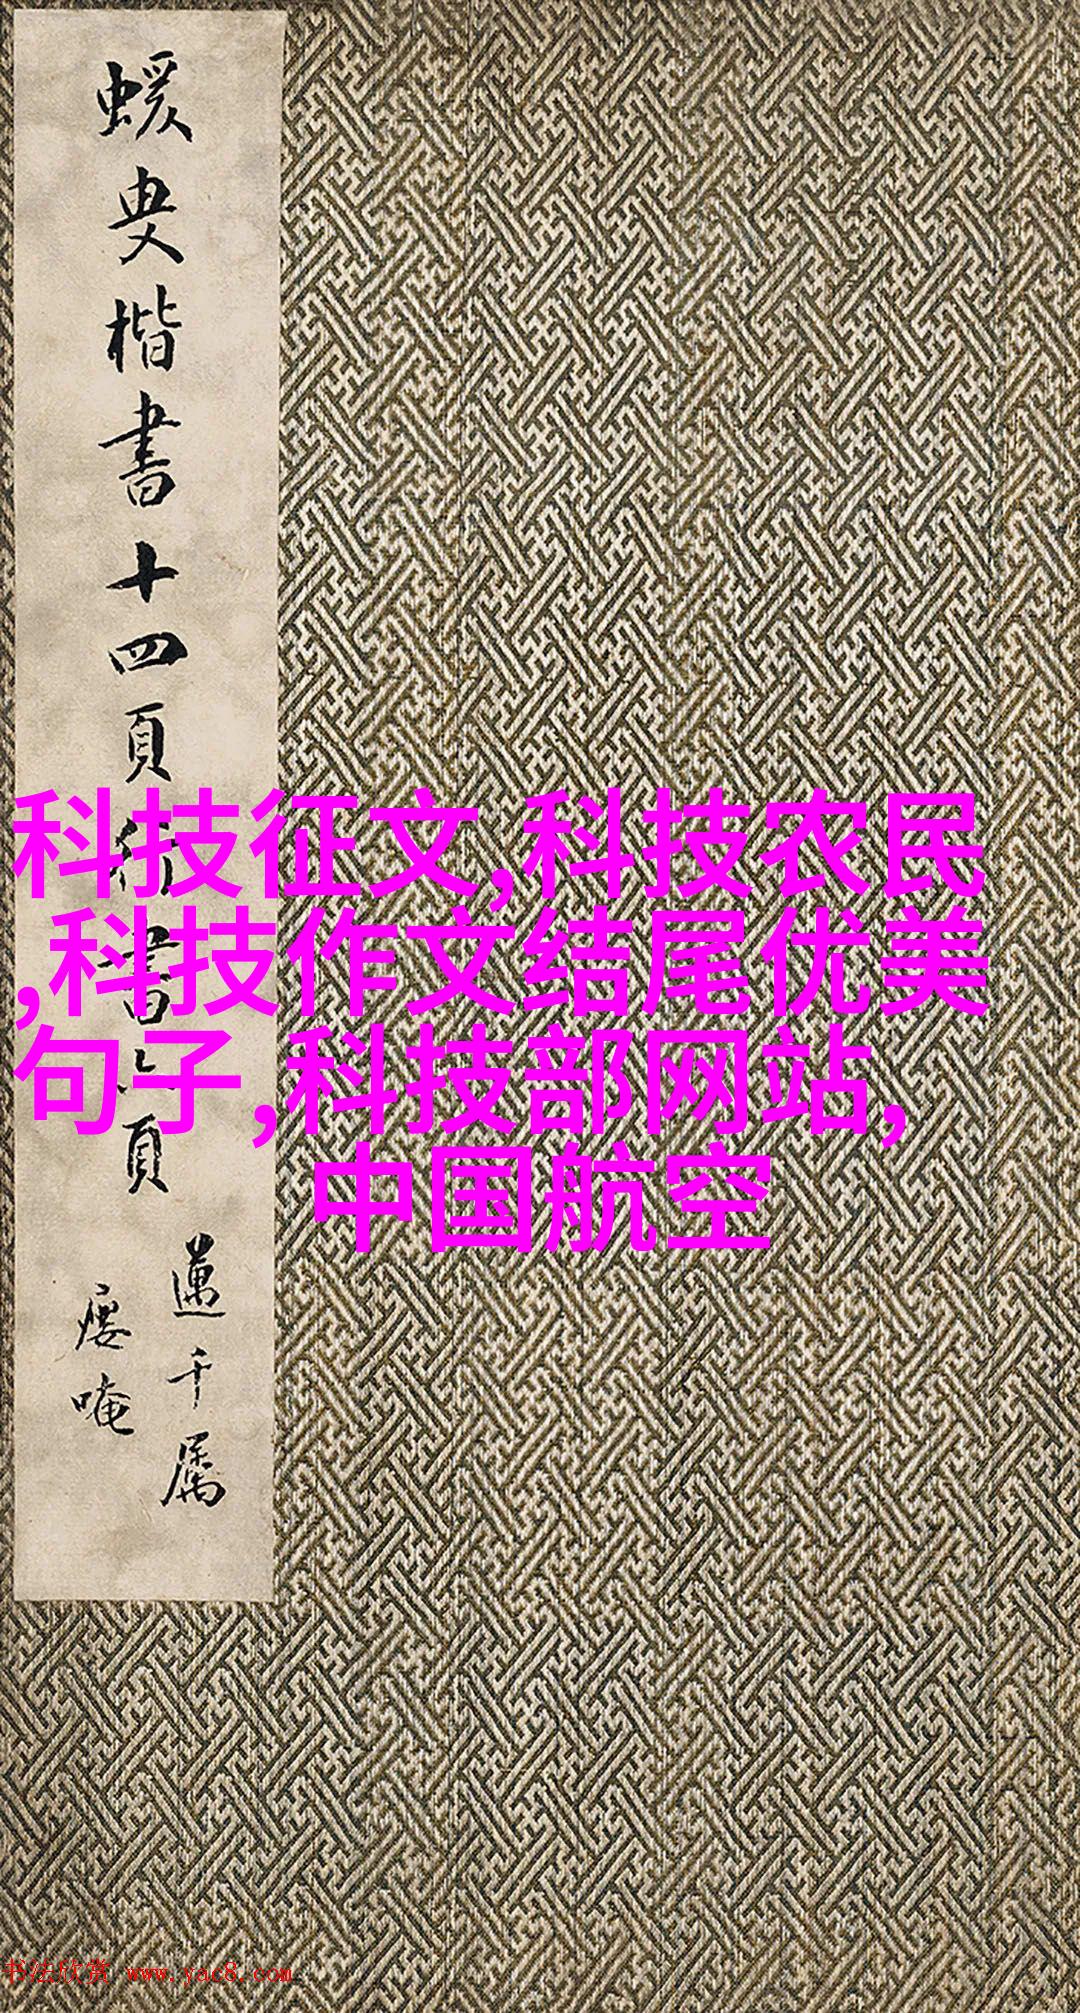 蝯叟楷書十四頁行書頁
千属
科技征文,科技农民
,科技作文结尾优美
句子,科技部网站,
中国航空
书法欣赏 www.yac8.com